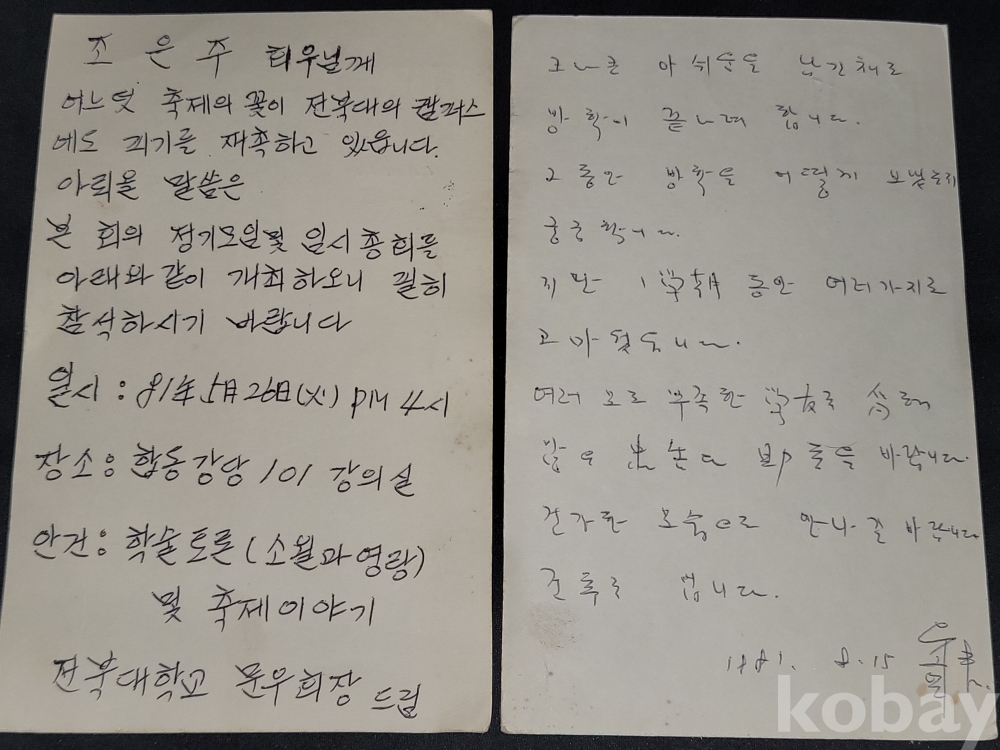 조 은 주 회우님께
어느덧 축제의 꽃이 전북대의 캠퍼스
에도 피기를 재촉하고 있읍니다.
아뢰올 말씀은
본 회의 정기모임및 임시총회를
아래와 같이 개최하오니 필히
참석하시기 바랍니다
일시 : 81年 5月 26日(火) PM 4시
장소 : 합동강당 101 강의실
안건 : 학술토론 (소월과 영랑)
및 축제이야기
전북대학교 문우회장 드림
아쉬움을 남긴채로
방학이 끝나려 합니다.
그동안 방학을 어떻게 보냈는지
궁금합니다.
지난 1 學期 동안 여러가지로
고마웠습니다.
여러모로 부족한 學友로
바랍니다.
건강한 모습으로 만나길 바랍니다
줄입니다.
1981. 8. 15
kobay